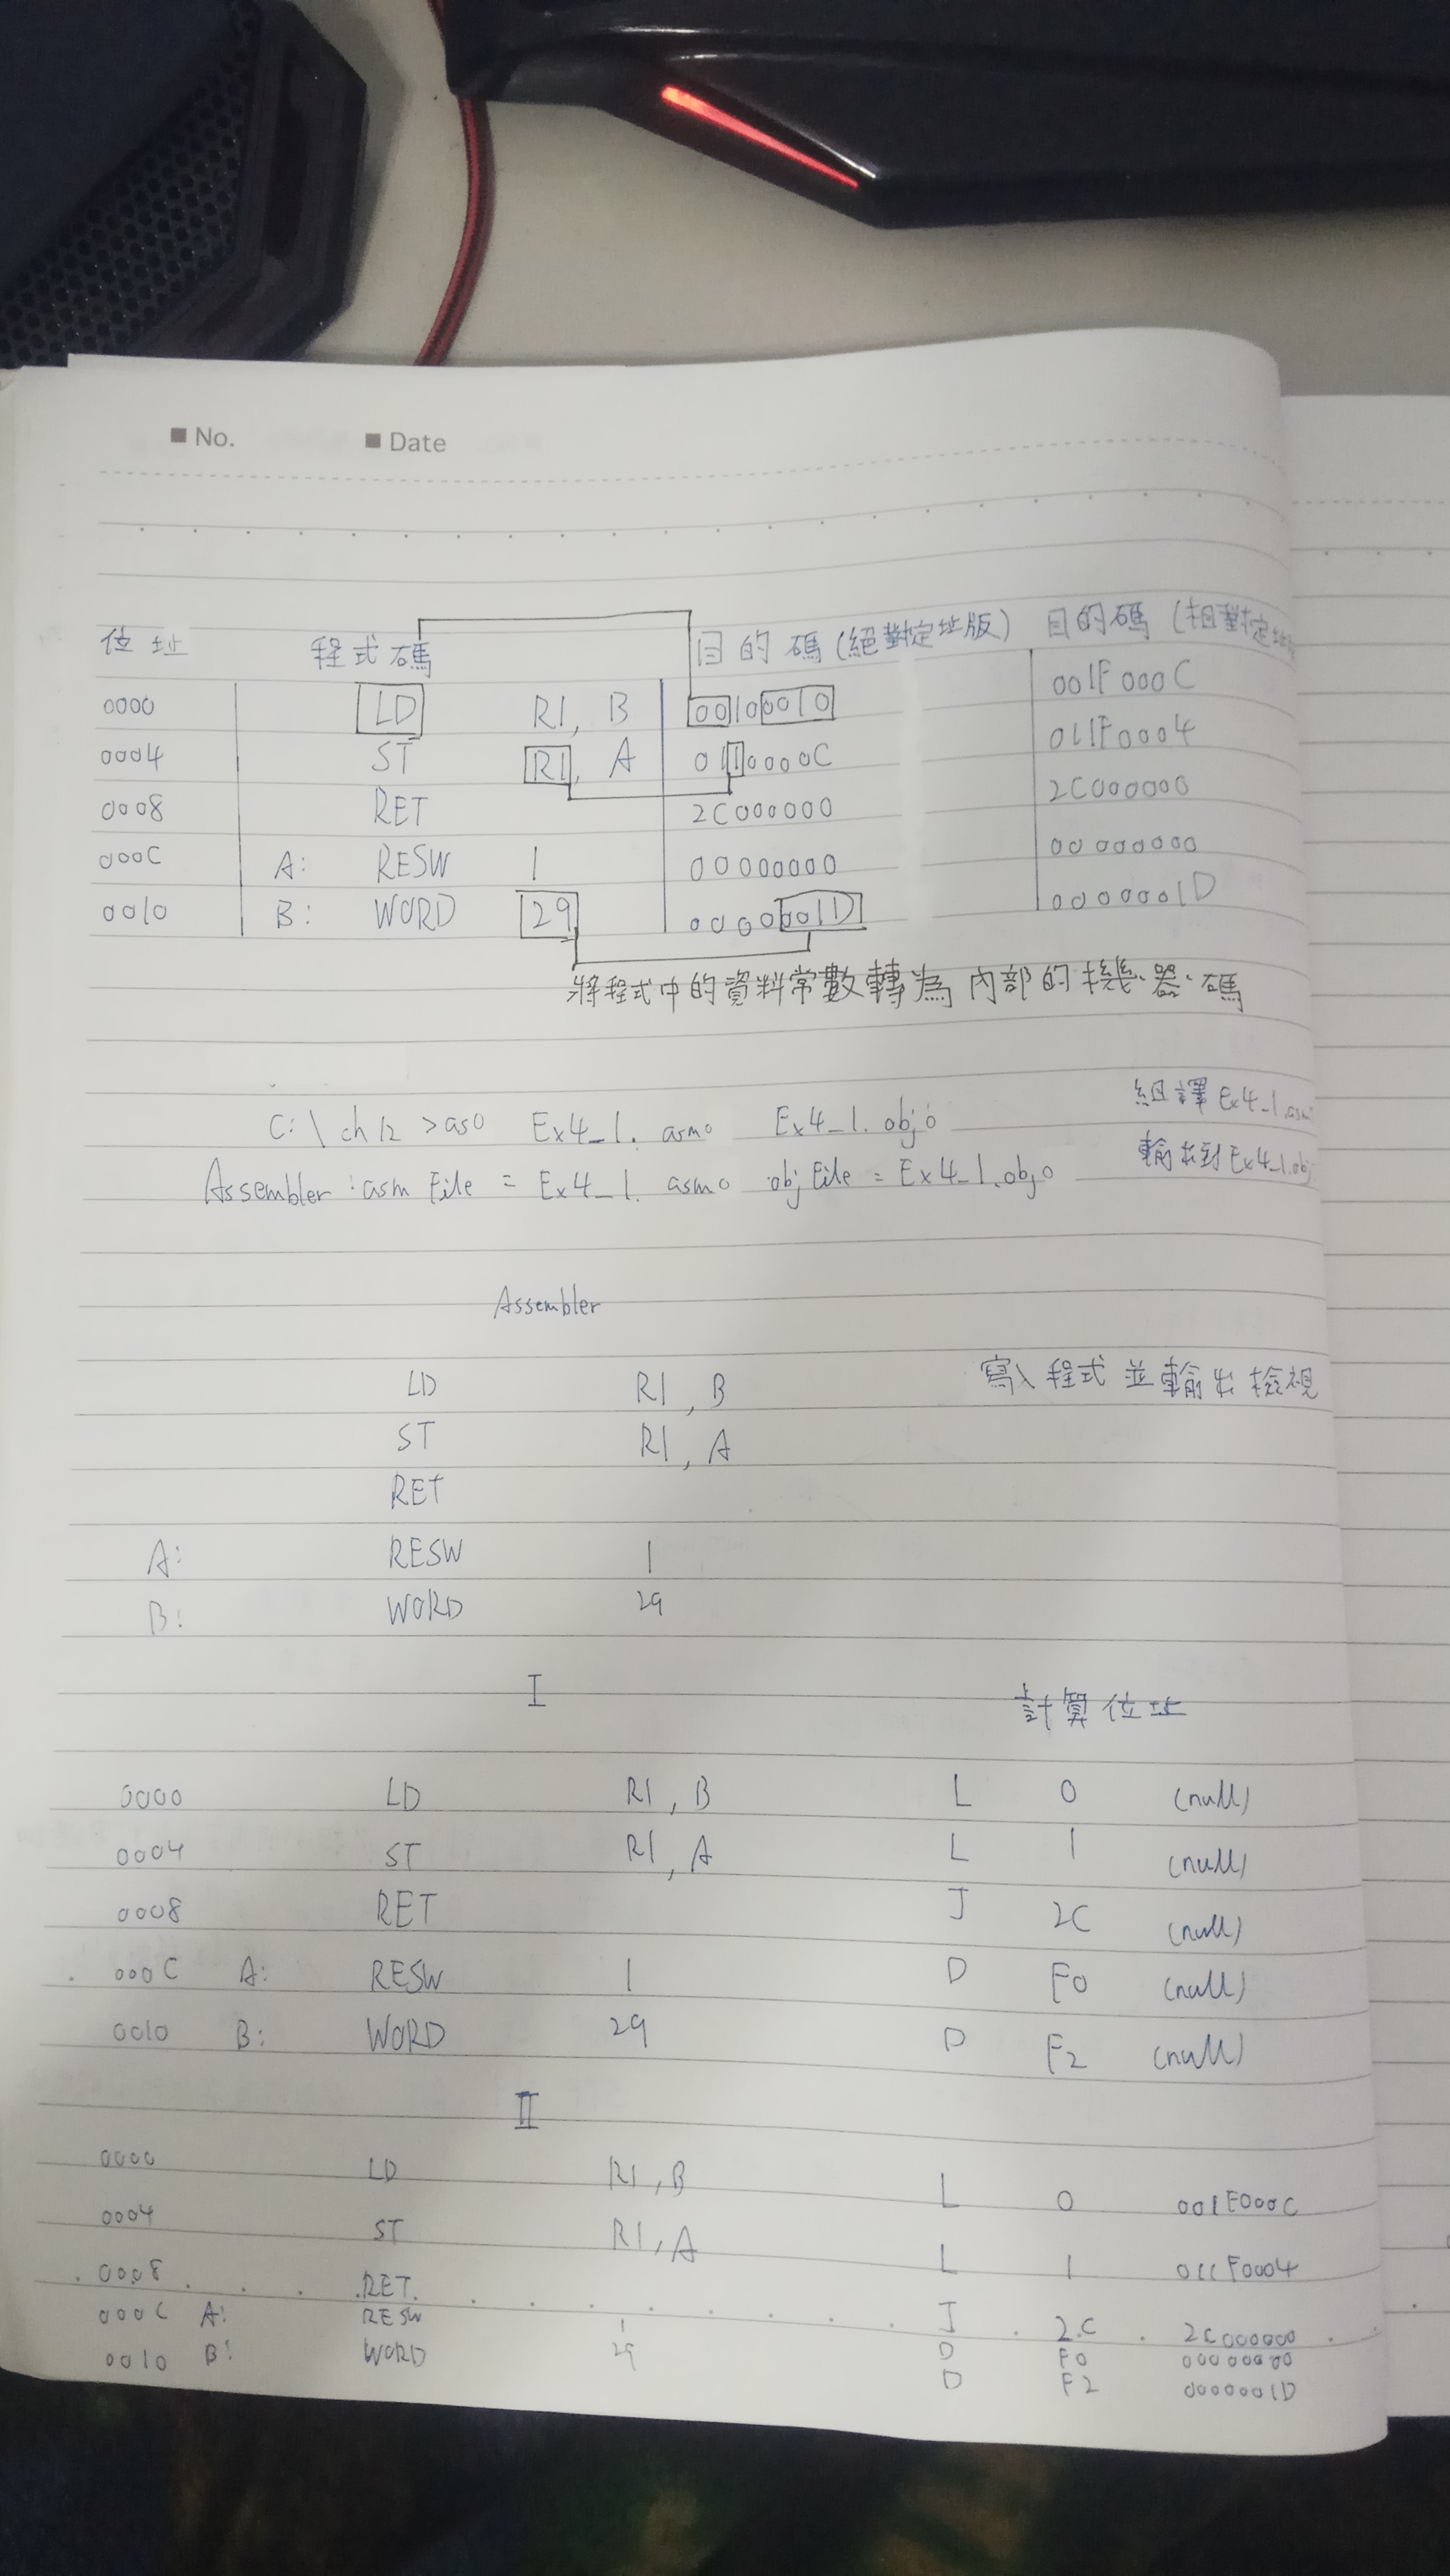 ■ No. ■ Date
位址 程式碼 目的碼(絕對定址版) 目的碼(相對定址
0000 LD R1, B 00100010 001F000C
0004 ST R1, A 0110000C 011F0004
0008 RET 2C000000 2C000000
000C A: RESW 1 00000000 00000000
0010 B: WORD 29 0000001D 0000001D
將程式中的資料常數轉為內部的機器碼
C:\ch12>as0 Ex4_1.asm0 Ex4_1.obj0 組譯Ex4_1.asm
Assembler:asm File = Ex4_1.asm0 obj File = Ex4_1.obj0 輸出到Ex4_1.obj
Assembler
LD R1, B 寫入程式並輸出檢視
ST R1, A
RET
A: RESW 1
B: WORD 29
I 計算位址
0000 LD R1, B L 0 (null)
0004 ST R1, A L 1 (null)
0008 RET J 2C (null)
000C A: RESW 1 D F0 (null)
0010 B: WORD 29 D F2 (null)
II
0000 LD R1, B L 0 001F000C
0004 ST R1, A L 1 011F0004
0008 RET J 2C 2C000000
000C A: RESW 1 D F0 00000000
0010 B: WORD 29 D F2 0000001D